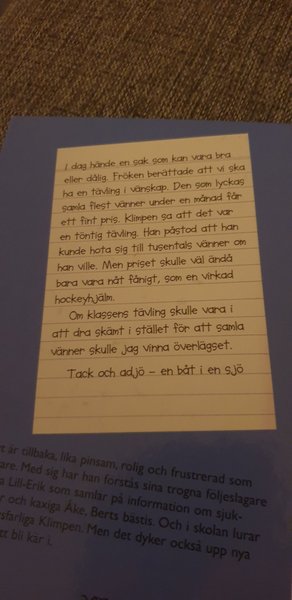 I dag hände en sak som kan vara bra
eller dålig. Fröken berättade att vi ska
ha en tävling i vänskap. Den som lyckas
samla flest vänner under en månad får
ett fint pris. Klimpen sa att det var
en töntig tävling. Han påstod att han
kunde hota sig till tusentals vänner om
han ville. Men priset skulle väl ändå
bara vara nåt fånigt, som en virkad
hockeyhjälm.
Om klassens tävling skulle vara i
att dra skämt i stället för att samla
vänner skulle jag vinna överlägset.
Tack och adjö – en båt i en sjö
är tillbaka, lika pinsam, rolig och frustrerad som
Med sig har han förstås sina trogna följeslagare
Lill-Erik som samlar på information om sjuk-
och kaxiga Åke, Berts bästis. Och i skolan lurar
Klimpen. Men det dyker också upp nya
att bli kär i.